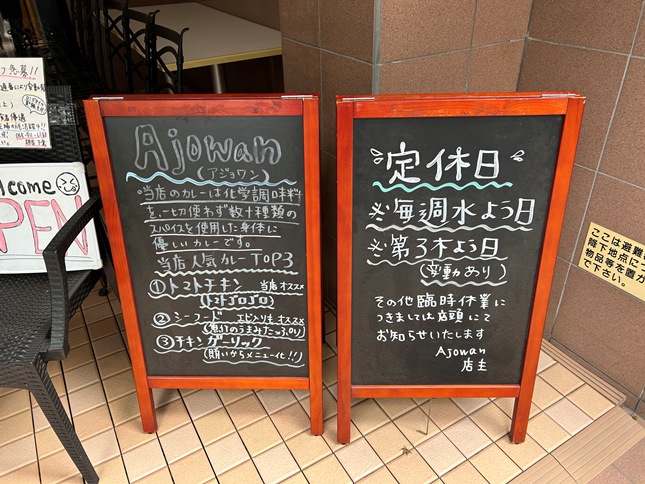 Ajowan
(アジョワン)
当店のカレーは化学調味料
を、一切使わず数十種類の
スパイスを使用した身体に
優しいカレーです。
当店人気カレーTOP3
①トマトチキン 当店オススメ
(トマトゴロゴロ)
②シーフード エビ入りもオススメ
③チキンガーリック
(賄いからメニュー化!!)
定休日
※毎週水よう日
※第3木よう日
(変動あり)
その他臨時休業に
つきましては店頭にて
お知らせいたします
Ajowan
店主
elcome
PEN
急募!!
ここは避難
降下地点に
物品等を置か
で下さい。